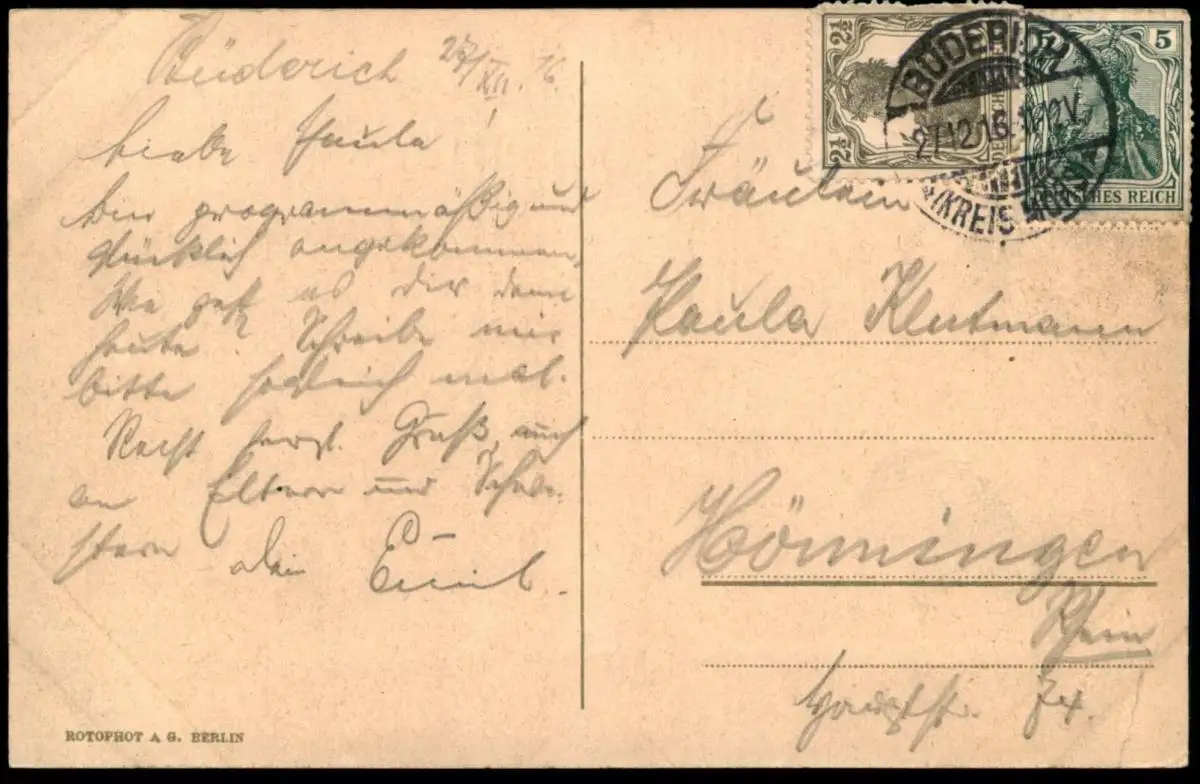 Büderich 27/XII. 16.
Liebe Paula!
bin programmäßig und
glücklich angekommen,
Wie geht es dir denn
heute? Schreibe mir
bitte sogleich mal.
Recht herzl. Gruß, auch
an Eltern und Schwe-
stern Dein Emil.
ROTOPHOT A G. BERLIN
2½ 2½
2½
5
DEUTSCHES REICH
BÜDERICH
27.12.16.
(KREIS
Fräulein
Paula Klutmann
Hönningen
Rhein
Hauptstr. 74.